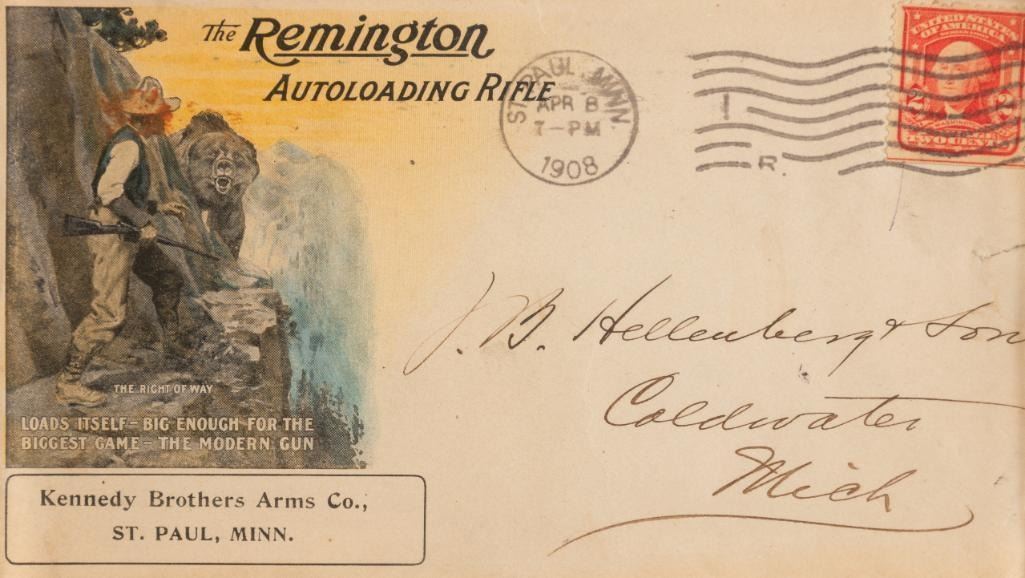 The Remington
AUTOLOADING RIFLE
THE RIGHT OF WAY
LOADS ITSELF - BIG ENOUGH FOR THE
BIGGEST GAME - THE MODERN GUN
Kennedy Brothers Arms Co.,
ST. PAUL, MINN.
ST. PAUL, MINN
APR 8
7-PM
1908
1
R.
UNITED STATES
OF AMERICA
2 2
TWO CENTS
J. B. Hellenberg & Son
Coldwater
Mich